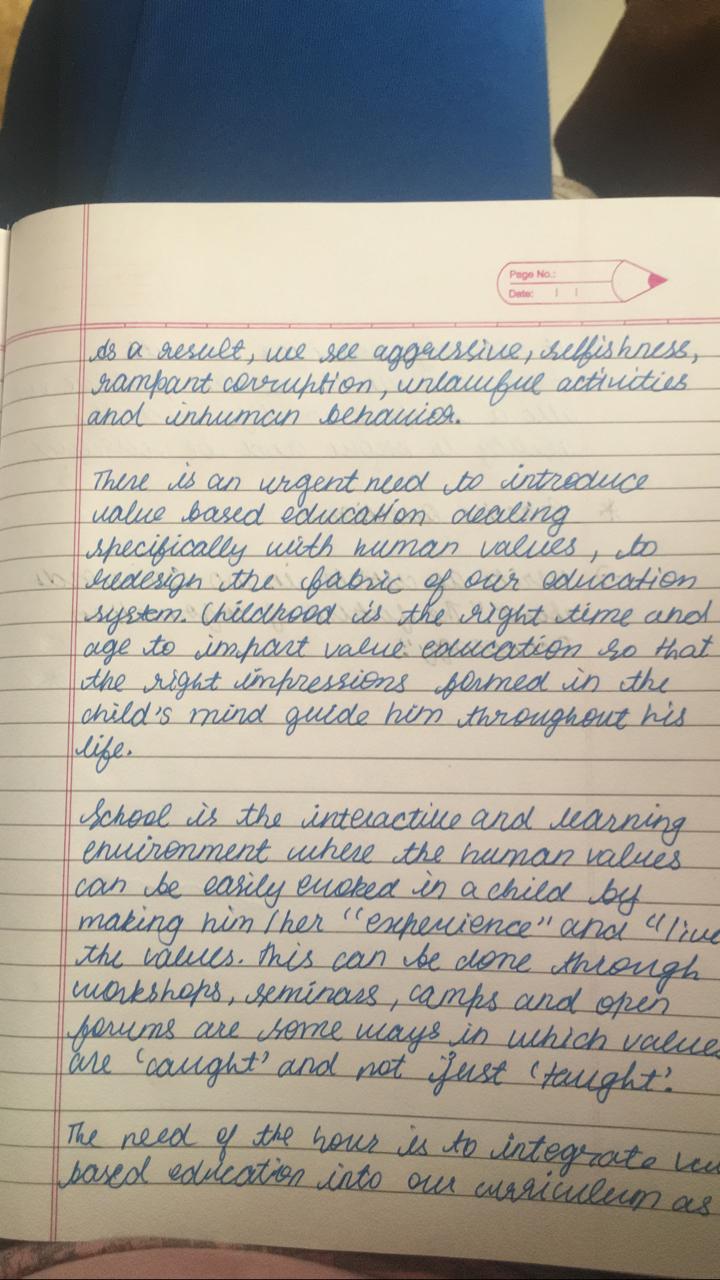 Page No.:
Date:
As a result, we see aggressive, selfishness,
rampant corruption, unlawful activities
and inhuman behavior.
There is an urgent need to introduce
value based education dealing
specifically with human values, to
redesign the fabric of our education
system. Childhood is the right time and
age to impart value education so that
the right impressions formed in the
child's mind guide him throughout his
life.
School is the interactive and learning
environment where the human values
can be easily evoked in a child by
making him/her "experience" and "live
the values. This can be done through
workshops, seminars, camps and open
forums are some ways in which values
are 'caught' and not just 'taught'.
The need of the hour is to integrate
based education into our curriculum as